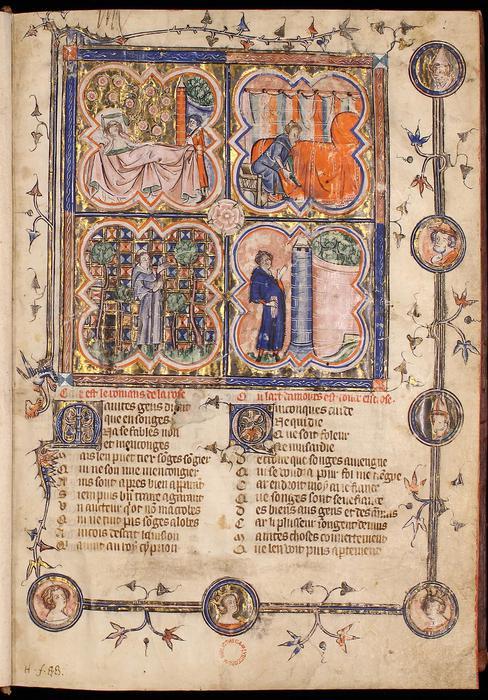 Ci est le romans de la rose
Maintes gens dient
que en songes
Na se fables non
et mensonges
Mais len puet tex songes songier
Qui ne sont mie mensongier
Ains sont apres bien apparant
Si en puis bien traire a garant
Un aucteur qot non macrobes
Qui ne tint pas songes a lobes
Aincois descrit la vision
Qui avint au roy cypion
Ou lart damours est toute enclose.
Quiconques cuide
Ne qui die
Que ce soit foleur
ne musardie
De croire que songes aviengne
Qui se voudra pour fol me tiegne
Car endroit moy ai ie fiance
Que songes soit senefiance
Des biens aus gens et des anuis
Car li pluseur songent de nuis
Maintes choses couvertement
Que len voit puis apertement